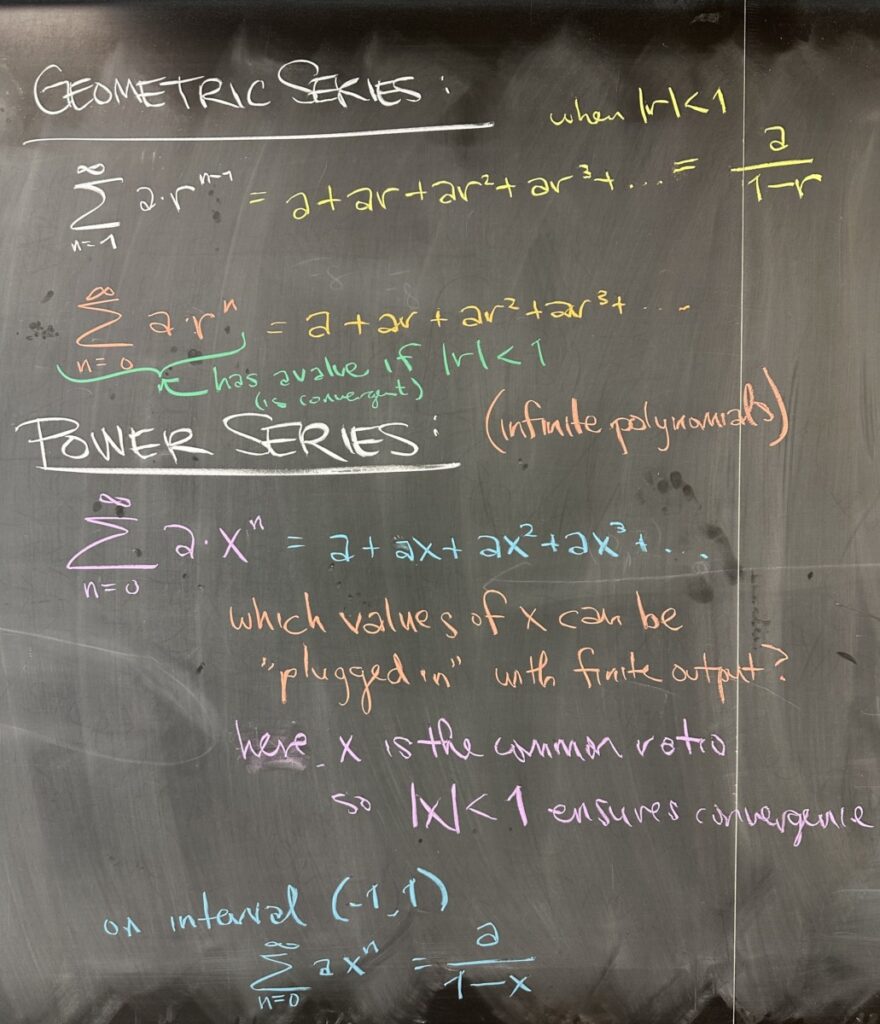 GEOMETRIC SERIES:
when |r|<1
∞
∑ a·r^(n-1) = a+ar+ar²+ar³+... = a/(1-r)
n=1
∞
∑ a·r^n = a+ar+ar²+ar³+...
n=0
has a value if |r|<1
(is convergent)
POWER SERIES: (infinite polynomials)
∞
∑ a·x^n = a+ax+ax²+ax³+...
n=0
which values of x can be
"plugged in" with finite output?
here x is the common ratio
so |x|<1 ensures convergence
on interval (-1,1)
∞
∑ ax^n = a/(1-x)
n=0